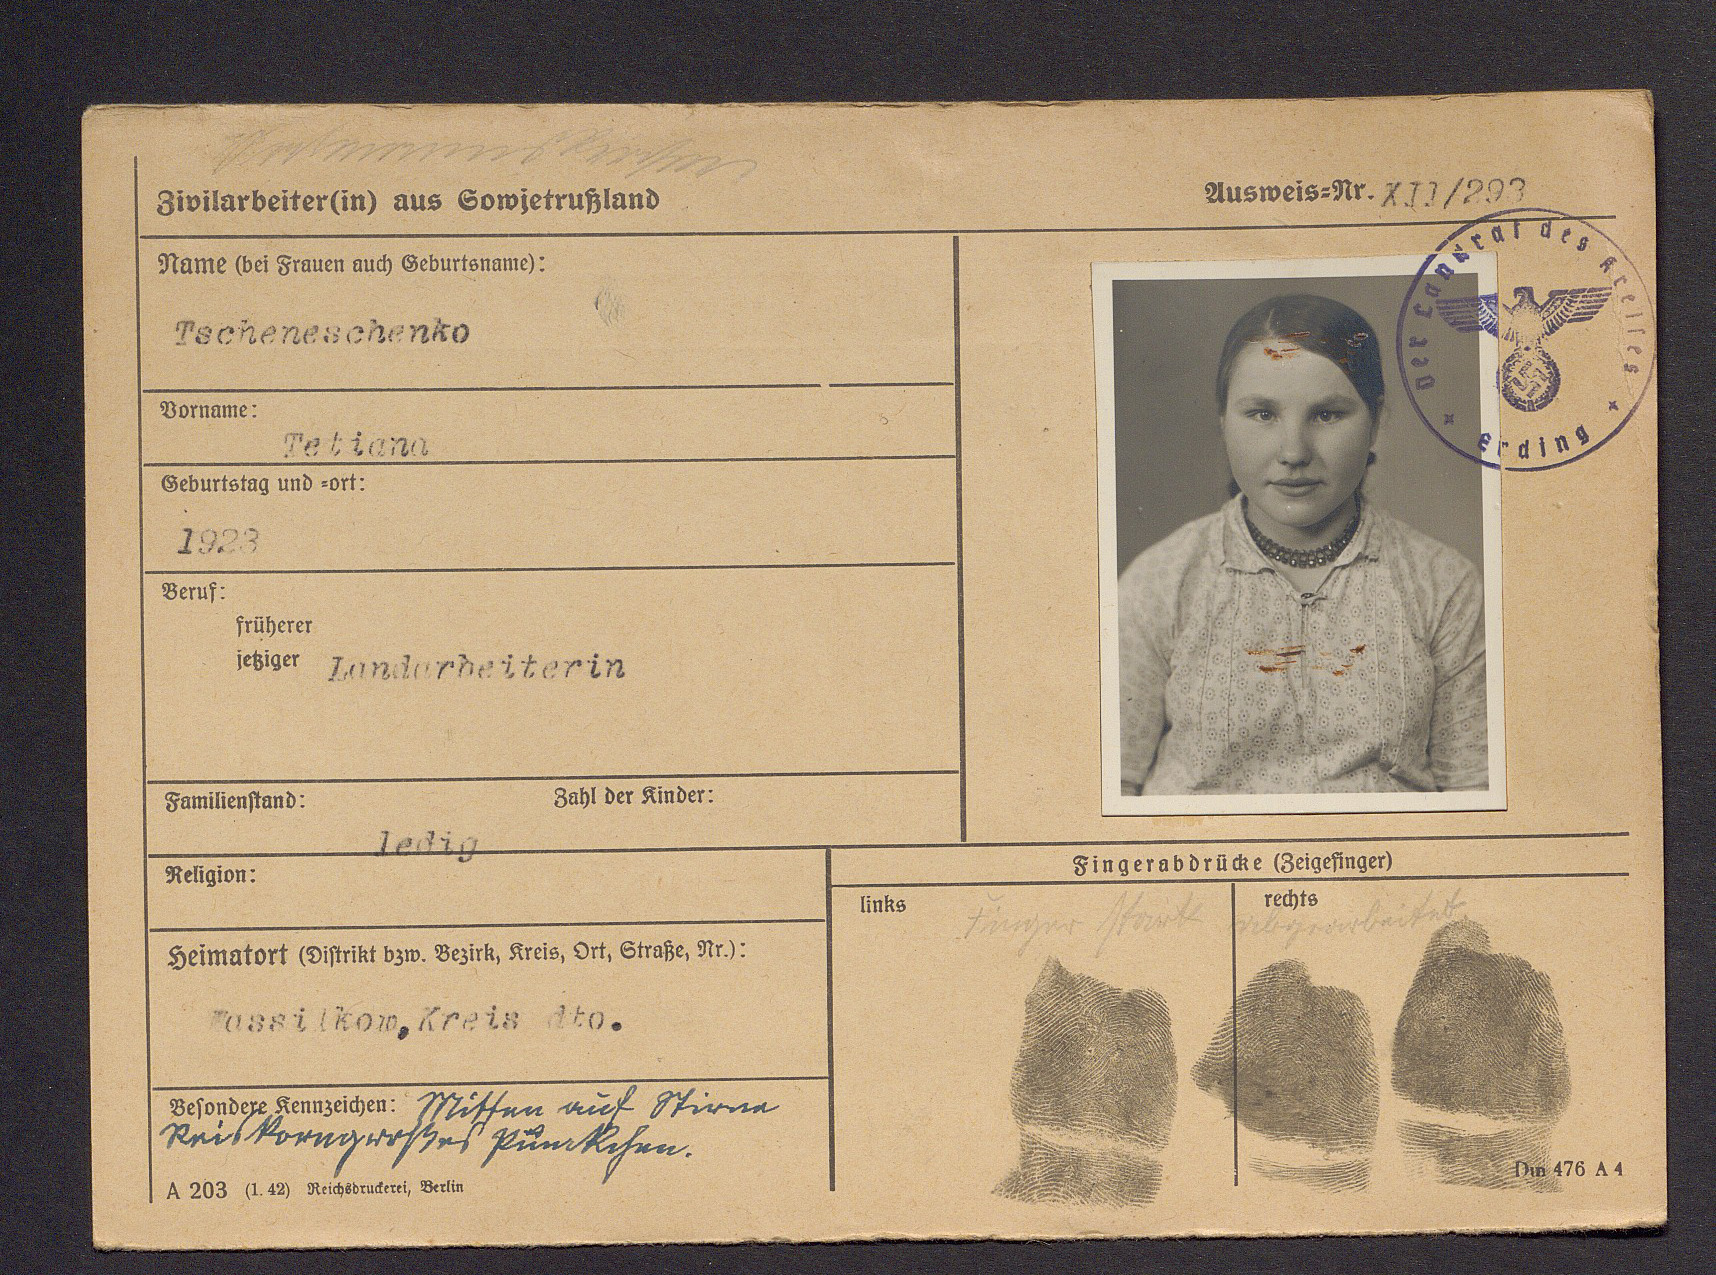 Zivilarbeiter(in) aus Sowjetrußland
Ausweis=Nr. XII/293
Name (bei Frauen auch Geburtsname):
Tscheneschenko
Vorname:
Tetiana
Geburtstag und =ort:
1923
Beruf:
früherer
jetziger Landarbeiterin
Familienstand: Zahl der Kinder:
ledig
Religion:
Heimatort (Distrikt bzw. Bezirk, Kreis, Ort, Straße, Nr.):
Wassilkow, Kreis dto.
Besondere Kennzeichen: Mitten auf Stirne
Reiskorngroßes Pünktchen.
A 203 (1. 42) Reichsdruckerei, Berlin
Der Landrat des Kreises
Erding
Fingerabdrücke (Zeigefinger)
links rechts
Finger stark abgearbeitet
Din 476 A 4